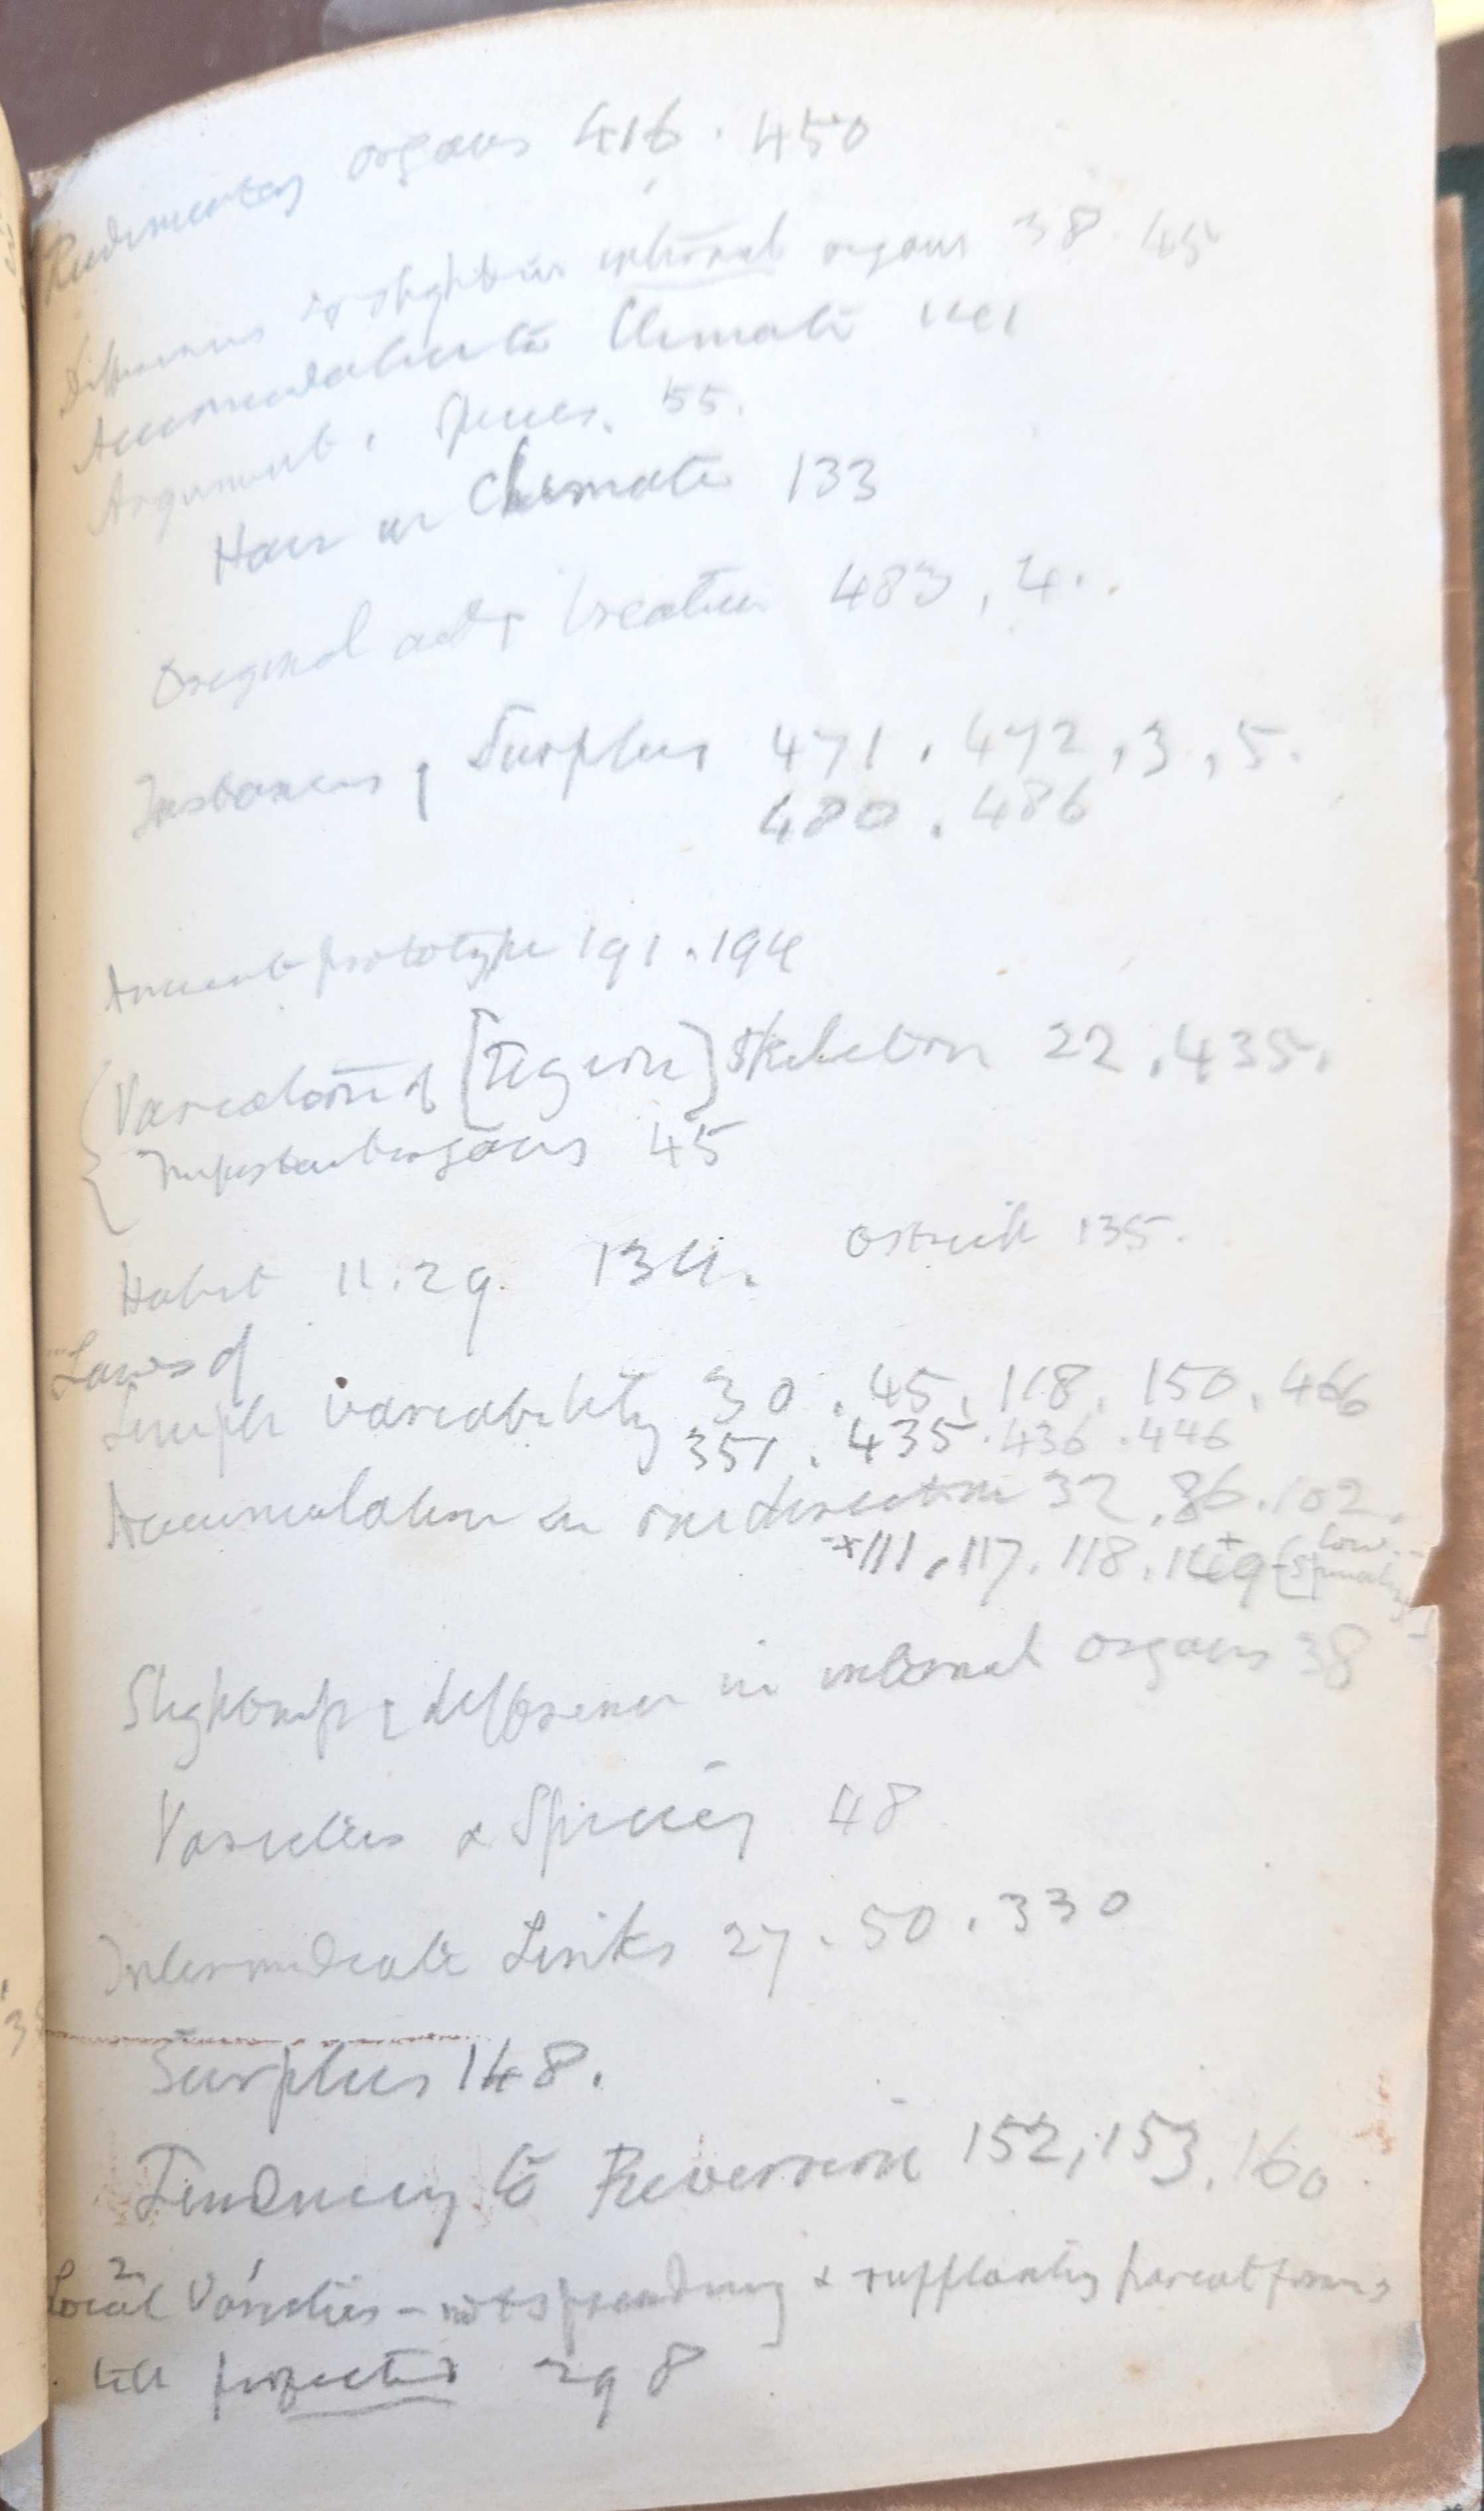 Rudimentary organs 416 . 450
Differences slight in internal organs 38 . 45
Accomodation to Climate 141
Argument . Species . 55 .
Hair in Climate 133
Original act of Creation 483 , 4 .
Instances , Surplus 471 . 472 , 3 , 5 .
480 . 486
Ancient prototype 191 . 194
Variations of [Pigeon] Skeleton 22 . 435 .
Important organs 45
Habit 11 . 29 134 . Ostrich 135 .
Laws of
Simple variability 30 . 45 . 118 . 150 . 466
351 . 435 . 436 . 446
Accumulation in one direction 32 . 86 . 102 .
x 111 . 117 . 118 . 149
difference in internal organs 38
Varieties & Species 48
Intermediate Links 27 . 50 . 330
Surplus 148 .
Tendency to Reversion 152 , 153 . 160
Local Varieties - not spreading & supplanting parent forms
till perfected 298